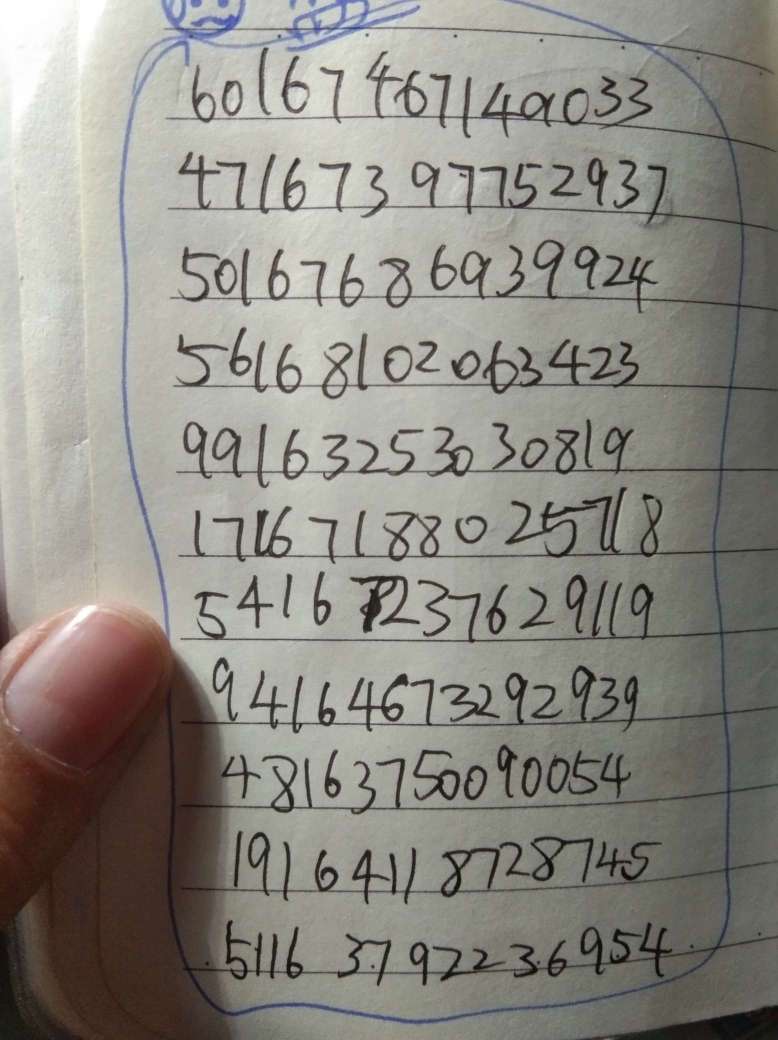 60167467149033
47167397752937
50167686939924
56168102063423
99163253030819
17167188025718
54167237629119
94164673292939
48163750090054
19164118728745
51163792236954